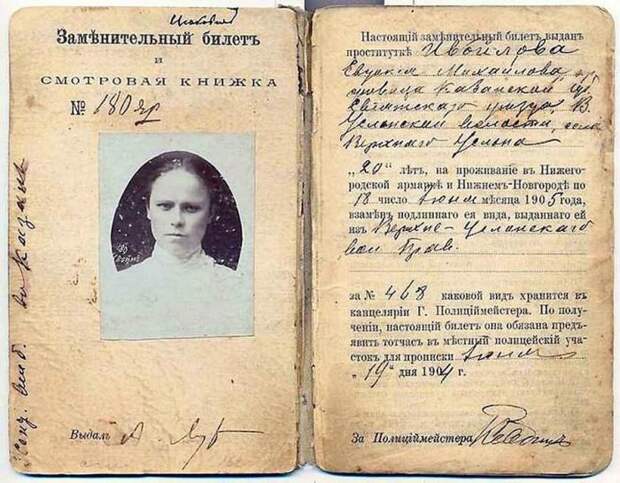 Замѣнительный билетъ
и
СМОТРОВАЯ КНИЖКА
№ 180 яр
Выдалъ
Настоящій замѣнительный билетъ выданъ
проституткѣ Ивоилова
Евдокія Михайлова, кр.
Казанской губ.
уѣзда, В.
Услонской волости, села
Верхняго Услона
„20“ лѣтъ, на проживаніе въ Нижего-
родской ярмаркѣ и Нижнемъ-Новгородѣ по
18 число Іюня мѣсяца 1905 года,
взамѣнъ подлиннаго ея вида, выданнаго ей
изъ Верхне-Услонскаго
вол. Прав.
за № 468 каковой видъ хранится въ
канцеляріи Г. Полиціймейстера. По полу-
ченіи, настоящій билетъ она обязана предъ-
явить тотчасъ въ мѣстный полицейскій уча-
стокъ для прописки Іюня
„19“ дня 1904 г.
За Полиціймейстера